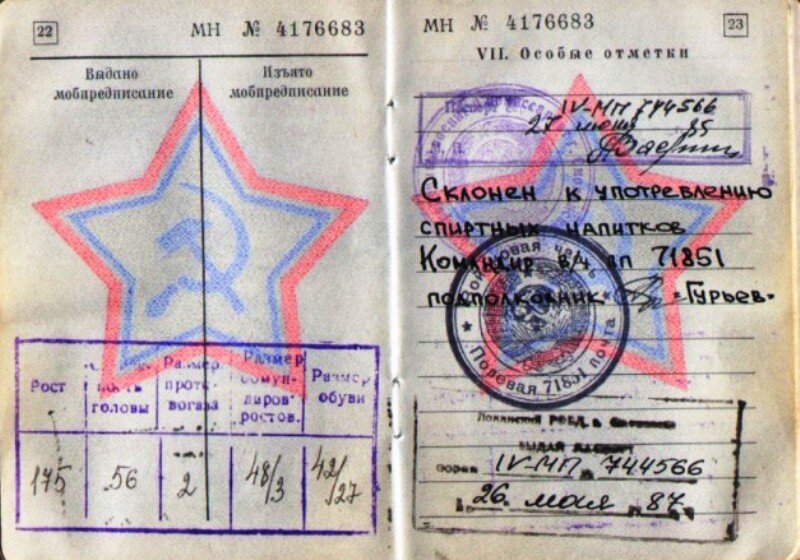 22
МН № 4176683
Выдано мобпредписание
Изъято мобпредписание
Рост
головы
Размер противогаза
Размер обмундиров. ростов.
Размер обуви
175
56
2
48/3
42/27
МН № 4176683
23
VII. Особые отметки
IV-МП 744566
27 июня 85
Склонен к употреблению
спиртных напитков
Командир в/ч пп 71851
подполковник «Гурьев»
Войсковая часть
Полевая почта 71851
РОВД
IV-МП 744566
26 мая 87.